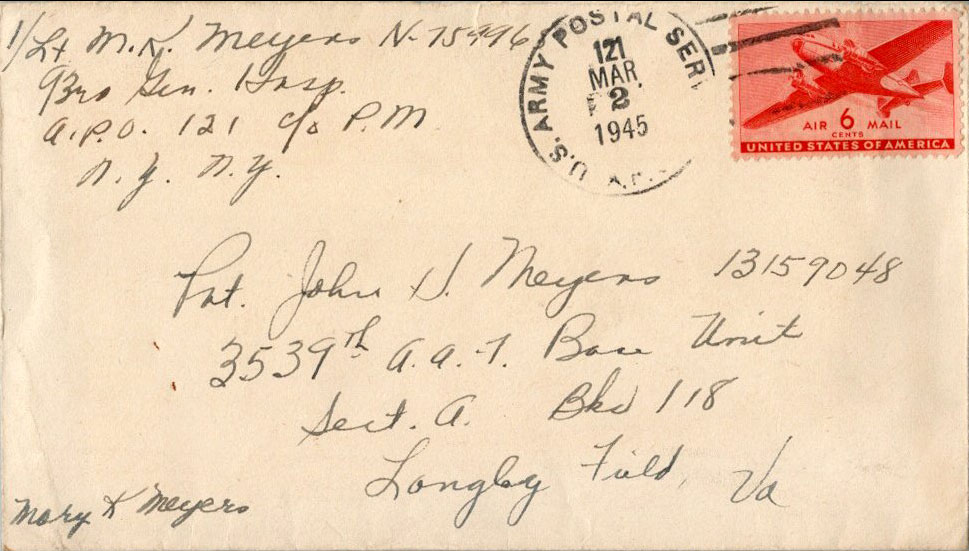 1/Lt M.K. Meyers N-75496
93rd Gen. Hosp.
A.P.O. 121 c/o P.M
N.Y. N.Y.
U.S. ARMY POSTAL SER
121
MAR
2
1945
A.P.
AIR 6 MAIL
CENTS
UNITED STATES OF AMERICA
Pvt. John H. Meyers 13159048
3539th A.A.F. Base Unit
Sect. A. Bks 118
Langley Field, Va
Mary K Meyers